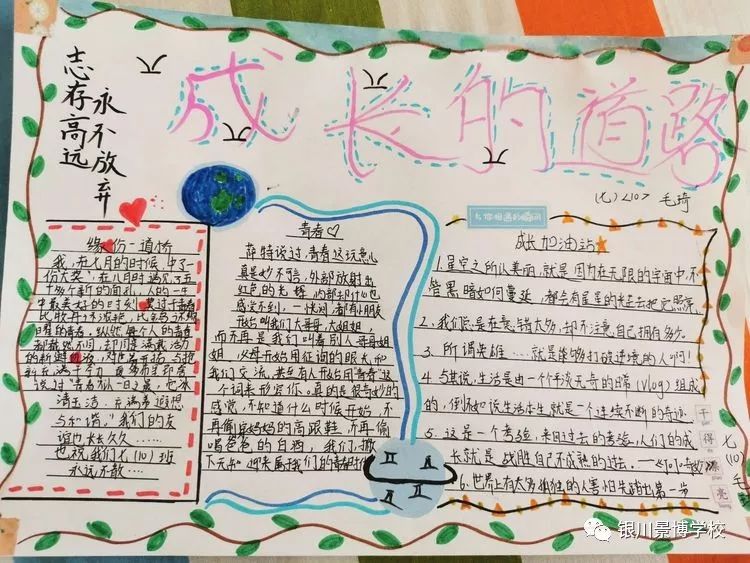 成长的道路
志存高远
永不放弃
(七)<10> 毛琦
与你相遇的瞬间
缘份一道桥
我,在七月的时候,中了一
份大奖,在八月时遇见了五
十多个新的面孔,人的一生
中最美好的时刻
的青春,纵然每个人的青春
都截然不同,却同是满载活力
说过"青春似一日之晨,它冰
清玉洁,充满着遐想
与和谐,"我们的友
谊也长长久久……
也祝我们七(10)班
永远不散……
青春♡
萨特说过,青春这玩意儿
真是妙不可言,外部放射出
红色的光辉,内部却什么也
感觉不到,一恍间,都有小朋友
开始叫我们大哥哥、大姐姐,
而不再是我们叫着别人哥哥姐
姐,父母开始用征询的眼光和
我们交流,甚至有人开始用青春这
个词来形容你。真的是很奇妙的
感觉,不知道什么时候开始,不
再偷 妈妈的高跟鞋,不再偷
喝爸爸的白酒,我们,撒
下天 迎来属于我们的青春
成长加油站★
1.星空之所以美丽,就是因为在无限的宇宙中,不
管黑暗如何蔓延,都会有星星的光芒去把它照亮
2.我们总是在意错太多,却不注意自己拥有多少。
3.所谓英雄……就是能够打破逆境的人啊!
4.与其说,生活是由一个个平淡无奇的日常(vlog)组成
的,倒不如说生活本生就是一个连续不断的奇迹
5.这是一个考验,来自过去的考验,人们的成
长就是战胜自己不成熟的过去.
6.世界上有太多孤独的人害怕先踏出第一步
干
得
漂
亮
七(10)毛
银川景博学校